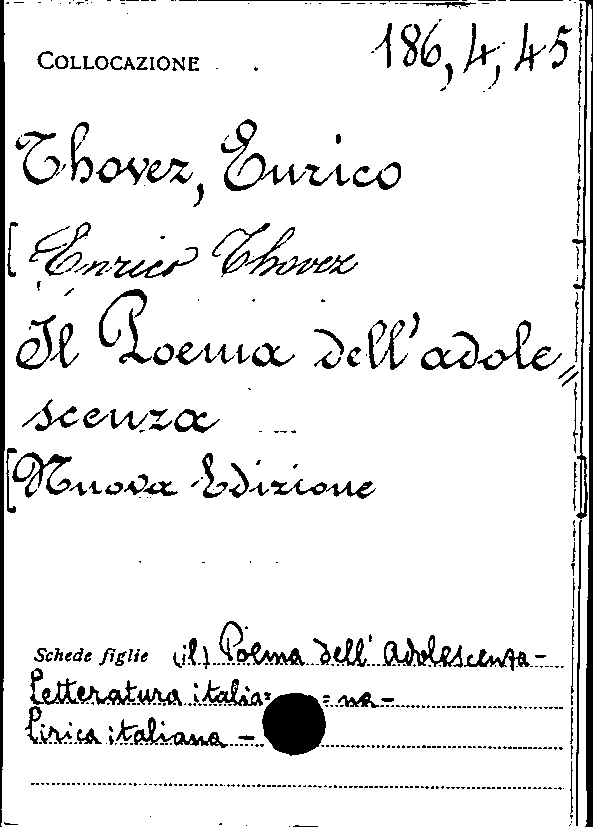 COLLOCAZIONE 186,4,45
Thovez, Enrico
[Enrico Thovez
Il Poema dell'adole=
scenza
[Nuova Edizione]
Schede figlie (il) Poema dell'Adolescenza-
Letteratura italia= =na-
Lirica italiana -